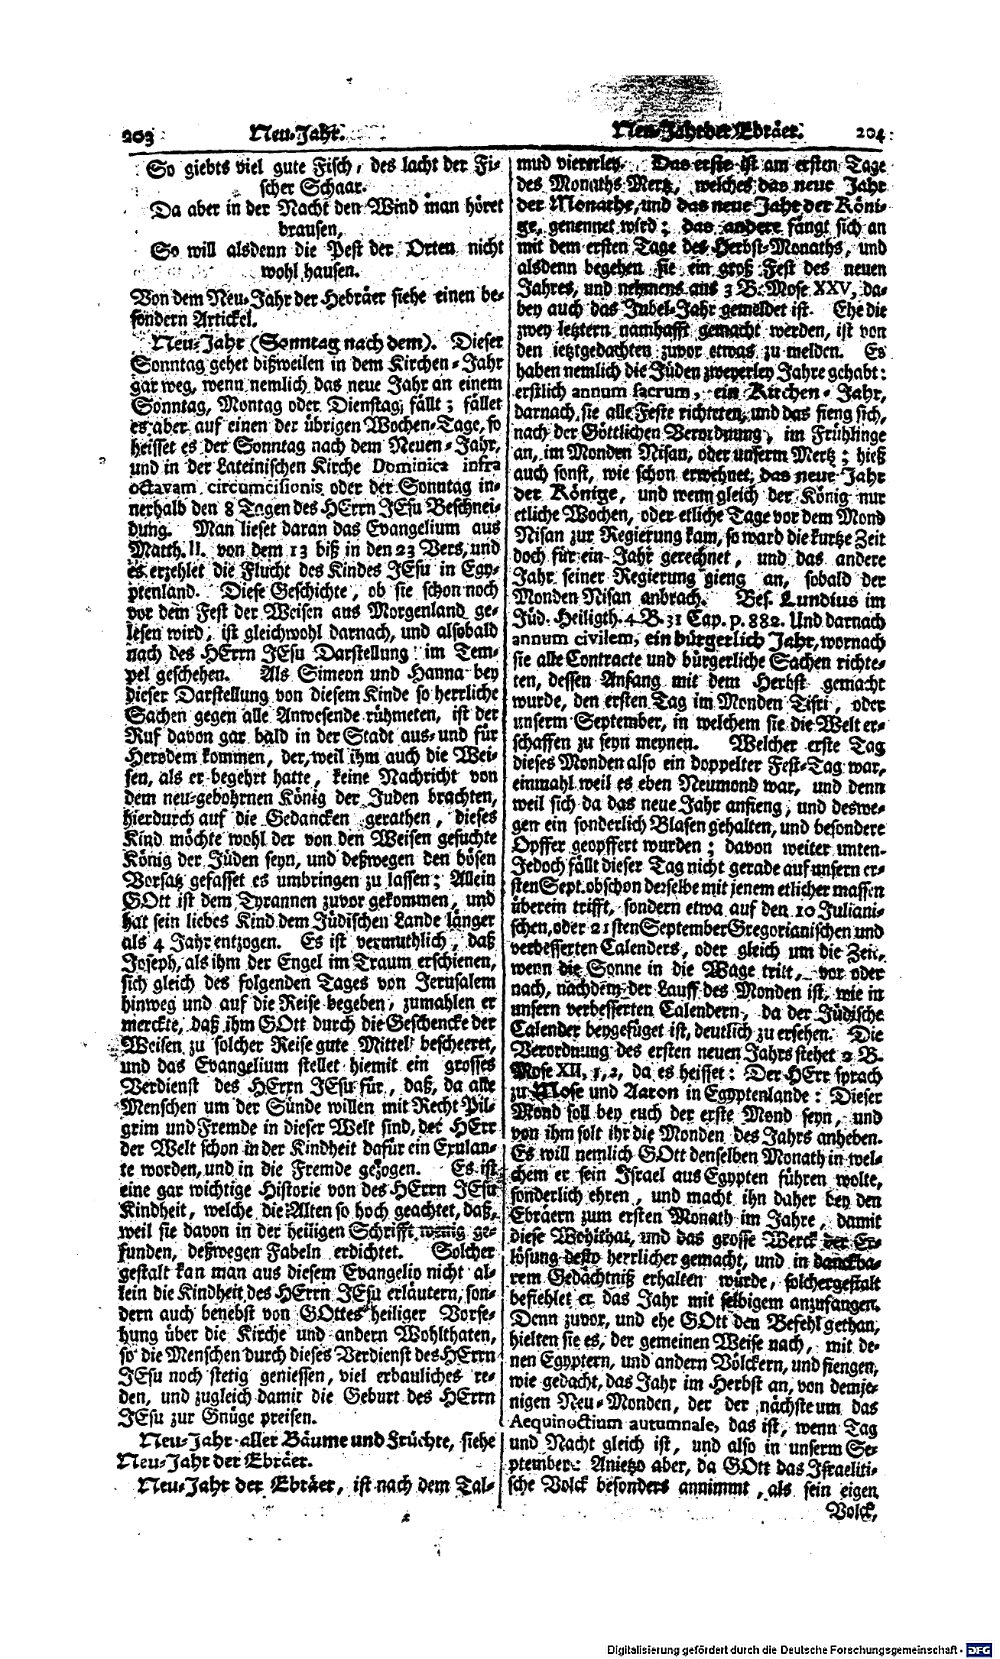 203 Neu-Jahr.
So giebts viel gute Fisch, des lacht der Fi-
scher Schaar.
Da aber in der Nacht den Wind man höret
brausen,
So will alsdenn die Pest der Orten nicht
wohl hausen.
Von dem Neu-Jahr der Hebräer siehe einen be-
sondern Artickel.
Neu-Jahr (Sonntag nach dem). Dieser
Sonntag gehet bißweilen in dem Kirchen-Jahr
gar weg, wenn nemlich das neue Jahr an einem
Sonntag, Montag oder Dienstag fällt; fället
es aber auf einen der übrigen Wochen-Tage, so
heisset es der Sonntag nach dem Neuen-Jahr,
und in der Lateinischen Kirche Dominica infra
octavam circumcisionis oder der Sonntag in-
nerhalb den 8 Tagen des HErrn JEsu Beschnei-
dung. Man lieset daran das Evangelium aus
Matth. II. von dem 13 biß in den 23 Vers, und
es erzehlet die Flucht des Kindes JEsu in Egy-
ptenland. Diese Geschichte, ob sie schon noch
vor dem Fest der Weisen aus Morgenland ge-
lesen wird, ist gleichwohl darnach, und alsobald
nach des HErrn JEsu Darstellung im Tem-
pel geschehen. Als Simeon und Hanna bey
dieser Darstellung von diesem Kinde so herrliche
Sachen gegen alle Anwesende rühmeten, ist der
Ruf davon gar bald in der Stadt aus- und für
Herodem kommen, der, weil ihm auch die Wei-
sen, als er begehrt hatte, keine Nachricht von
dem neu-gebohrnen König der Juden brachten,
hierdurch auf die Gedancken gerathen, dieses
Kind möchte wohl der von den Weisen gesuchte
König der Jüden seyn, und deßwegen den bösen
Vorsatz gefasset es umbringen zu lassen; Allein
GOtt ist dem Tyrannen zuvor gekommen, und
hat sein liebes Kind dem Jüdischen Lande länger
als 4 Jahr entzogen. Es ist vermuthlich, daß
Joseph, als ihm der Engel im Traum erschienen,
sich gleich des folgenden Tages von Jerusalem
hinweg und auf die Reise begeben, zumahlen er
merckte, daß ihm GOtt durch die Geschencke der
Weisen zu solcher Reise gute Mittel bescheeret,
und das Evangelium stellet hiemit ein grosses
Verdienst des HErrn JEsu für, daß, da alle
Menschen um der Sünde willen mit Recht Pil-
grim und Fremde in dieser Welt sind, der HErr
der Welt schon in der Kindheit dafür ein Exulan-
te worden, und in die Fremde gezogen. Es ist
eine gar wichtige Historie von des HErrn JEsu
Kindheit, welche die Alten so hoch geachtet, daß,
weil sie davon in der heiligen Schrifft wenig ge-
funden, deßwegen Fabeln erdichtet. Solcher
gestalt kan man aus diesem Evangelio nicht al-
lein die Kindheit des HErrn JEsu erläutern, son-
dern auch benebst von GOttes heiliger Vorse-
hung über die Kirche und andern Wohlthaten,
so die Menschen durch dieses Verdienst des HErrn
JEsu noch stetig geniessen, viel erbauliches re-
den, und zugleich damit die Geburt des HErrn
JEsu zur Gnüge preisen.
Neu-Jahr aller Bäume und Früchte, siehe
Neu-Jahr der Ebräer.
Neu-Jahr der Ebräer, ist nach dem Tal-
Neu-Jahr der Ebräer. 204
mud viererley. Das erste ist am ersten Tage
des Monaths Mertz, welches das neue Jahr
der Monathe, und das neue Jahr der Köni-
ge, genennet wird; das andere fängt sich an
mit dem ersten Tage des Herbst-Monaths, und
alsdenn begehen sie ein groß Fest des neuen
Jahres, und nehmens aus 3 B. Mose XXV, da-
bey auch das Jubel-Jahr gemeldet ist. Ehe die
zwey letztern namhafft gemacht werden, ist von
den ietztgedachten zuvor etwas zu melden. Es
haben nemlich die Jüden zweyerley Jahre gehabt:
erstlich annum sacrum, ein Kirchen-Jahr,
darnach sie alle Feste richteten, und das fieng sich,
nach der Göttlichen Verordnung, im Frühlinge
an, im Monden Nisan, oder unserm Mertz; hieß
auch sonst, wie schon erwehnet, das neue Jahr
der Könige, und wenn gleich der König nur
etliche Wochen, oder etliche Tage vor dem Mond
Nisan zur Regierung kam, so ward die kurtze Zeit
doch für ein Jahr gerechnet, und das andere
Jahr seiner Regierung gieng an, sobald der
Monden Nisan anbrach. Bes. Lundius im
Jüd. Heiligth. 4 B. 31 Cap. p. 882. Und darnach
annum civilem, ein bürgerlich Jahr, wornach
sie alle Contracte und bürgerliche Sachen richte-
ten, dessen Anfang mit dem Herbst gemacht
wurde, den ersten Tag im Monden Tisri, oder
unserm September, in welchem sie die Welt er-
schaffen zu seyn meynen. Welcher erste Tag
dieses Monden also ein doppelter Fest-Tag war,
einmahl weil es eben Neumond war, und denn
weil sich da das neue Jahr anfieng, und deswe-
gen ein sonderlich Blasen gehalten, und besondere
Opffer geopffert wurden; davon weiter unten.
Jedoch fällt dieser Tag nicht gerade auf unsern er-
sten Sept. obschon derselbe mit jenem etlicher massen
überein trifft, sondern etwa auf den 10 Juliani-
schen, oder 21sten September Gregorianischen und
verbesserten Calenders, oder gleich um die Zeit,
wenn die Sonne in die Wage tritt, vor oder
nach, nachdem der Lauff des Monden ist, wie in
unsern verbesserten Calendern, da der Jüdische
Calender beygefüget ist, deutlich zu ersehen. Die
Verordnung des ersten neuen Jahrs stehet 2 B.
Mose XII, 1, 2, da es heisset: Der HErr sprach
zu Mose und Aaron in Egyptenlande: Dieser
Mond soll bey euch der erste Mond seyn, und
von ihm solt ihr die Monden des Jahrs anheben.
Es will nemlich GOtt denselben Monath in wel-
chem er sein Israel aus Egypten führen wolte,
sonderlich ehren, und macht ihn daher bey den
Ebräern zum ersten Monath im Jahre, damit
diese Wohlthat, und das grosse Werck der Er-
lösung desto herrlicher gemacht, und in danckba-
rem Gedächtniß erhalten würde, solchergestalt
befiehlet er das Jahr mit selbigem anzufangen.
Denn zuvor, und ehe GOtt den Befehl gethan,
hielten sie es, der gemeinen Weise nach, mit de-
nen Egyptern, und andern Völckern, und fiengen,
wie gedacht, das Jahr im Herbst an, von demje-
nigen Neu-Monden, der der nächste um das
Aequinoctium autumnale, das ist, wenn Tag
und Nacht gleich ist, und also in unserm Se-
ptember. Anietzo aber, da GOtt das Israeliti-
sche Volck besonders annimmt, als sein eigen
Volck,
Digitalisierung gefördert durch die Deutsche Forschungsgemeinschaft - DFG